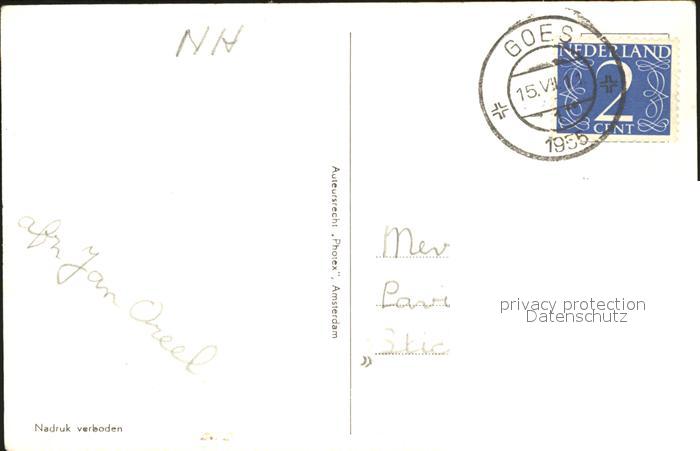 NH
GOES
15.VII.
1955
NEDERLAND
2
CENT
Auteursrecht „Photex", Amsterdam
Mev
Pavi
afz Jan Oreel
privacy protection
Datenschutz
Nadruk verboden